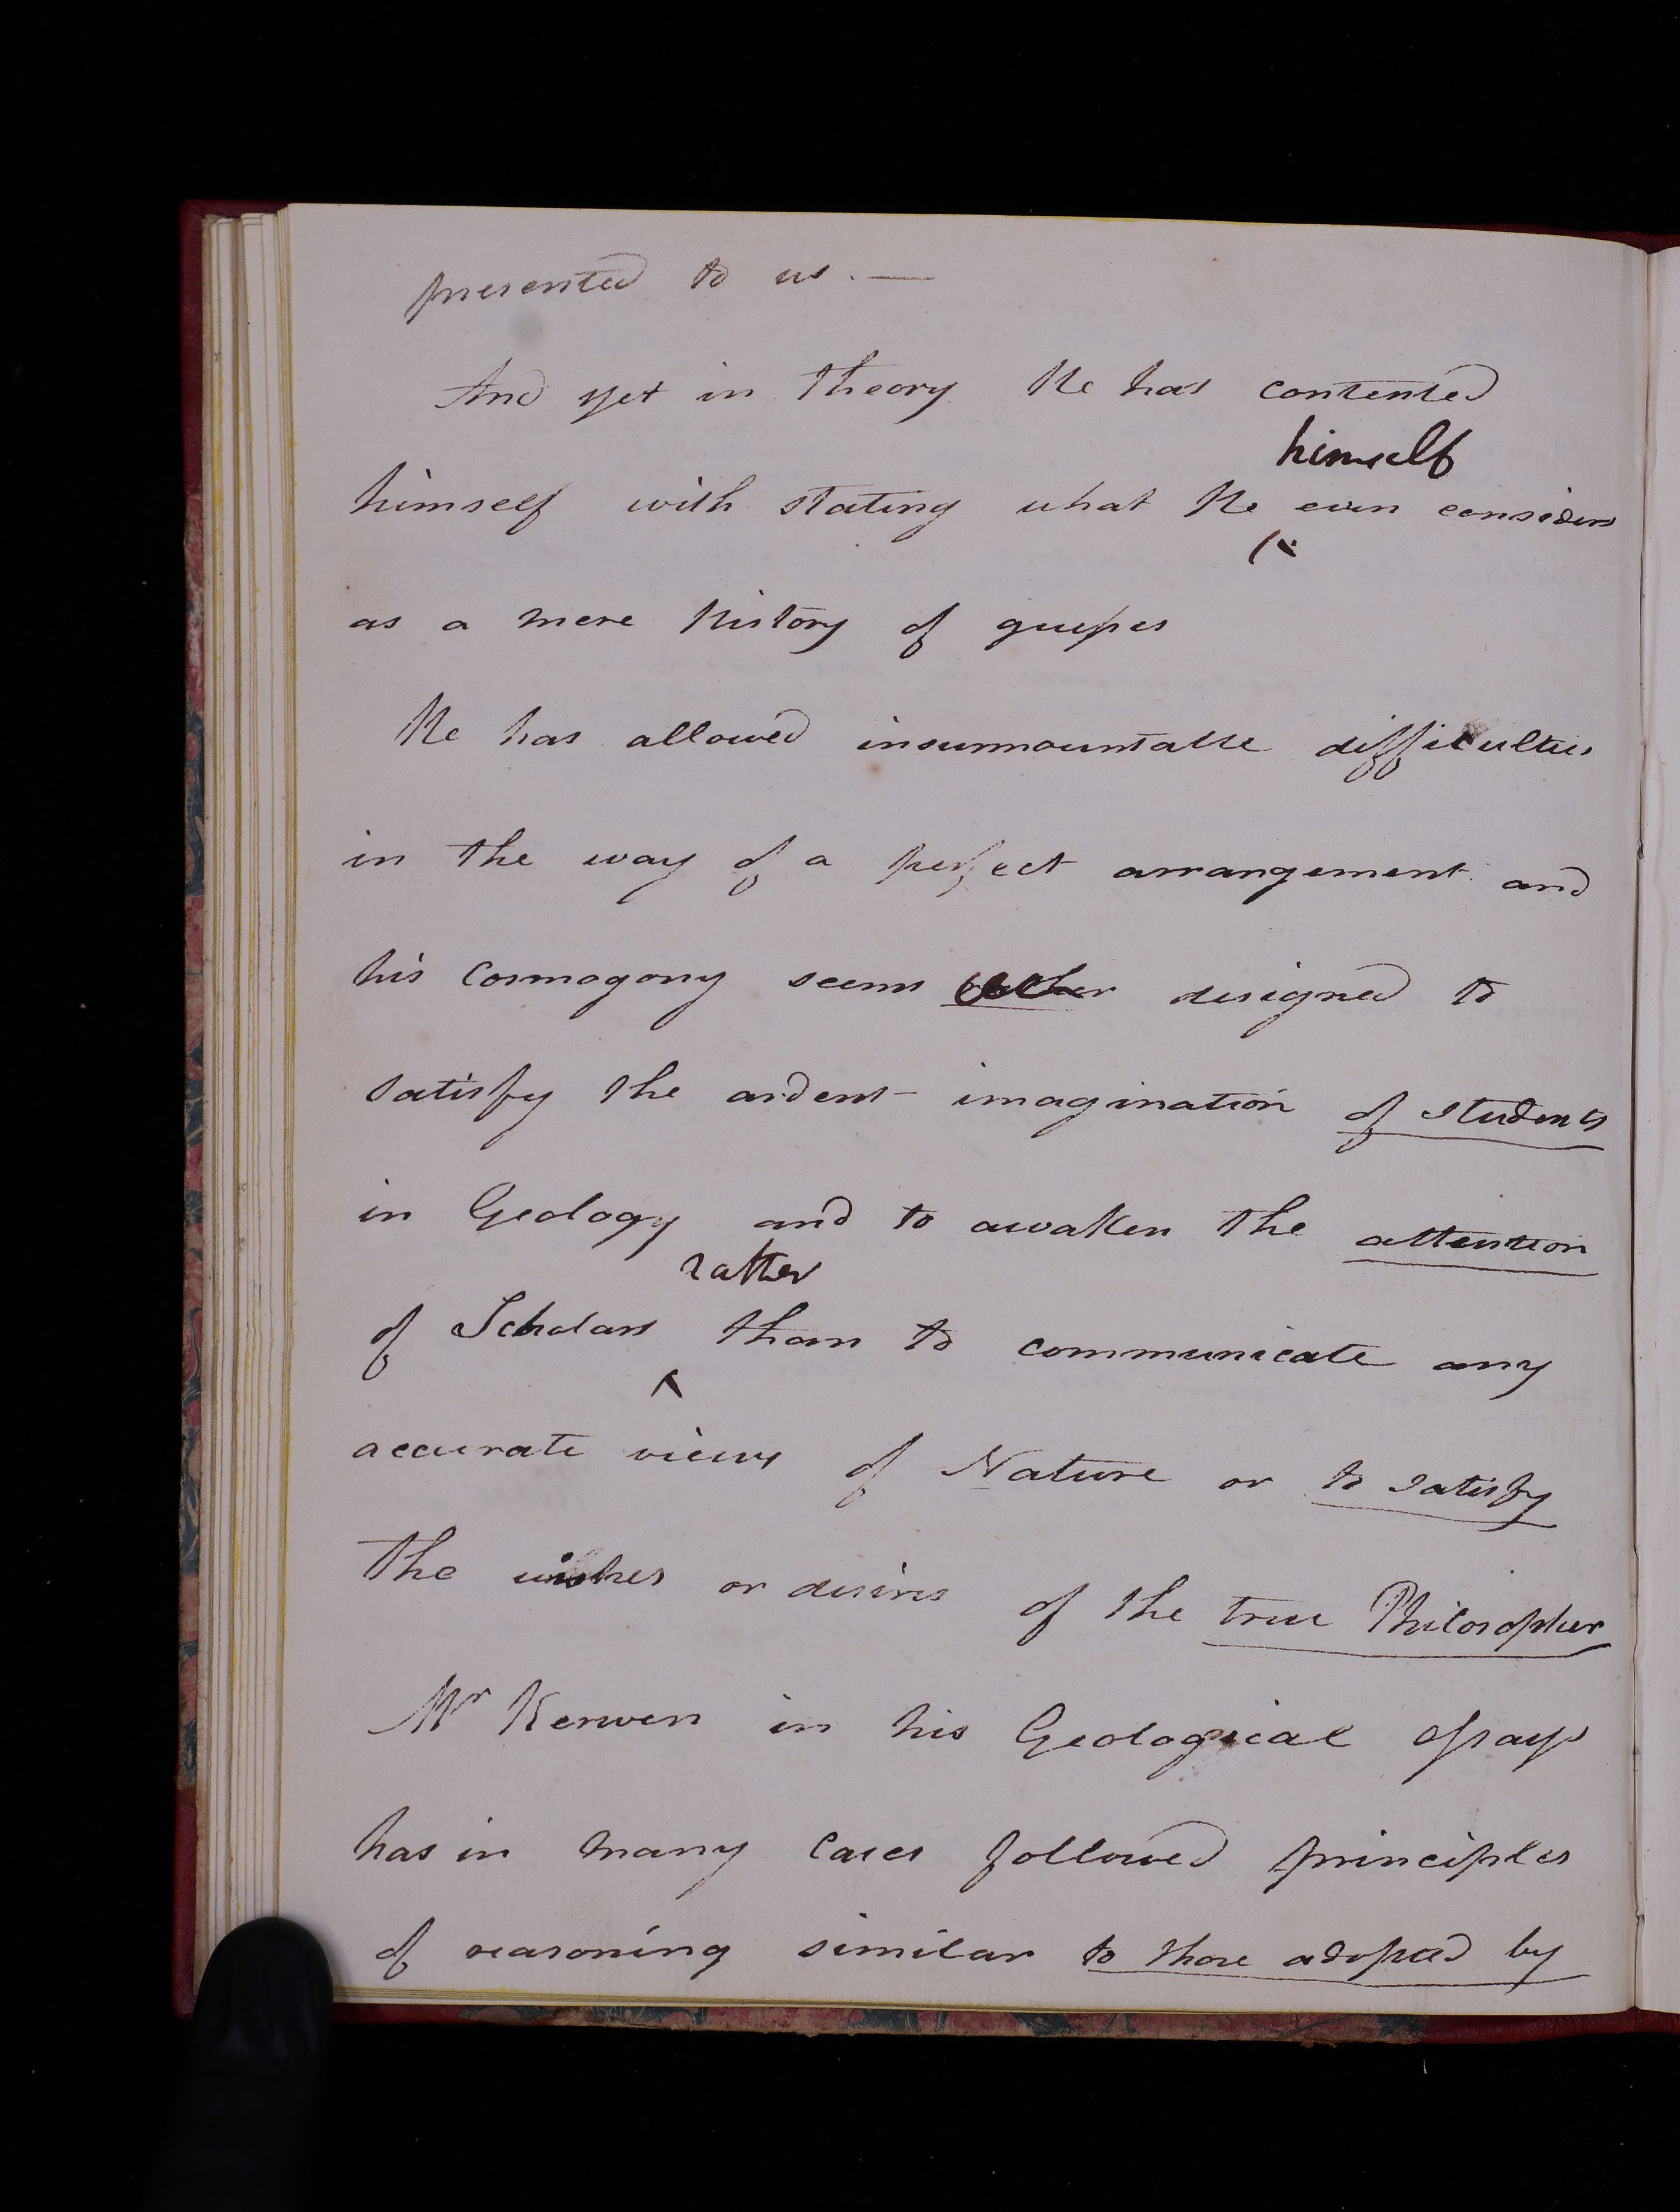 presented to us. —
And yet in Theory He has contented
himself
himself with stating what He even considers
as a mere History of guesses
He has allowed insurmountable difficulties
in the way of a perfect arrangement and
his Cosmogony seems rather designed to
satisfy the ardent imagination of students
in Geology and to awaken the attention
rather
of Scholars than to communicate any
accurate views of Nature or to satisfy
The wishes or desires of the true Philosopher
Mr Kerwen in his Geological essays
has in many cases followed principles
of reasoning similar to those adopted by